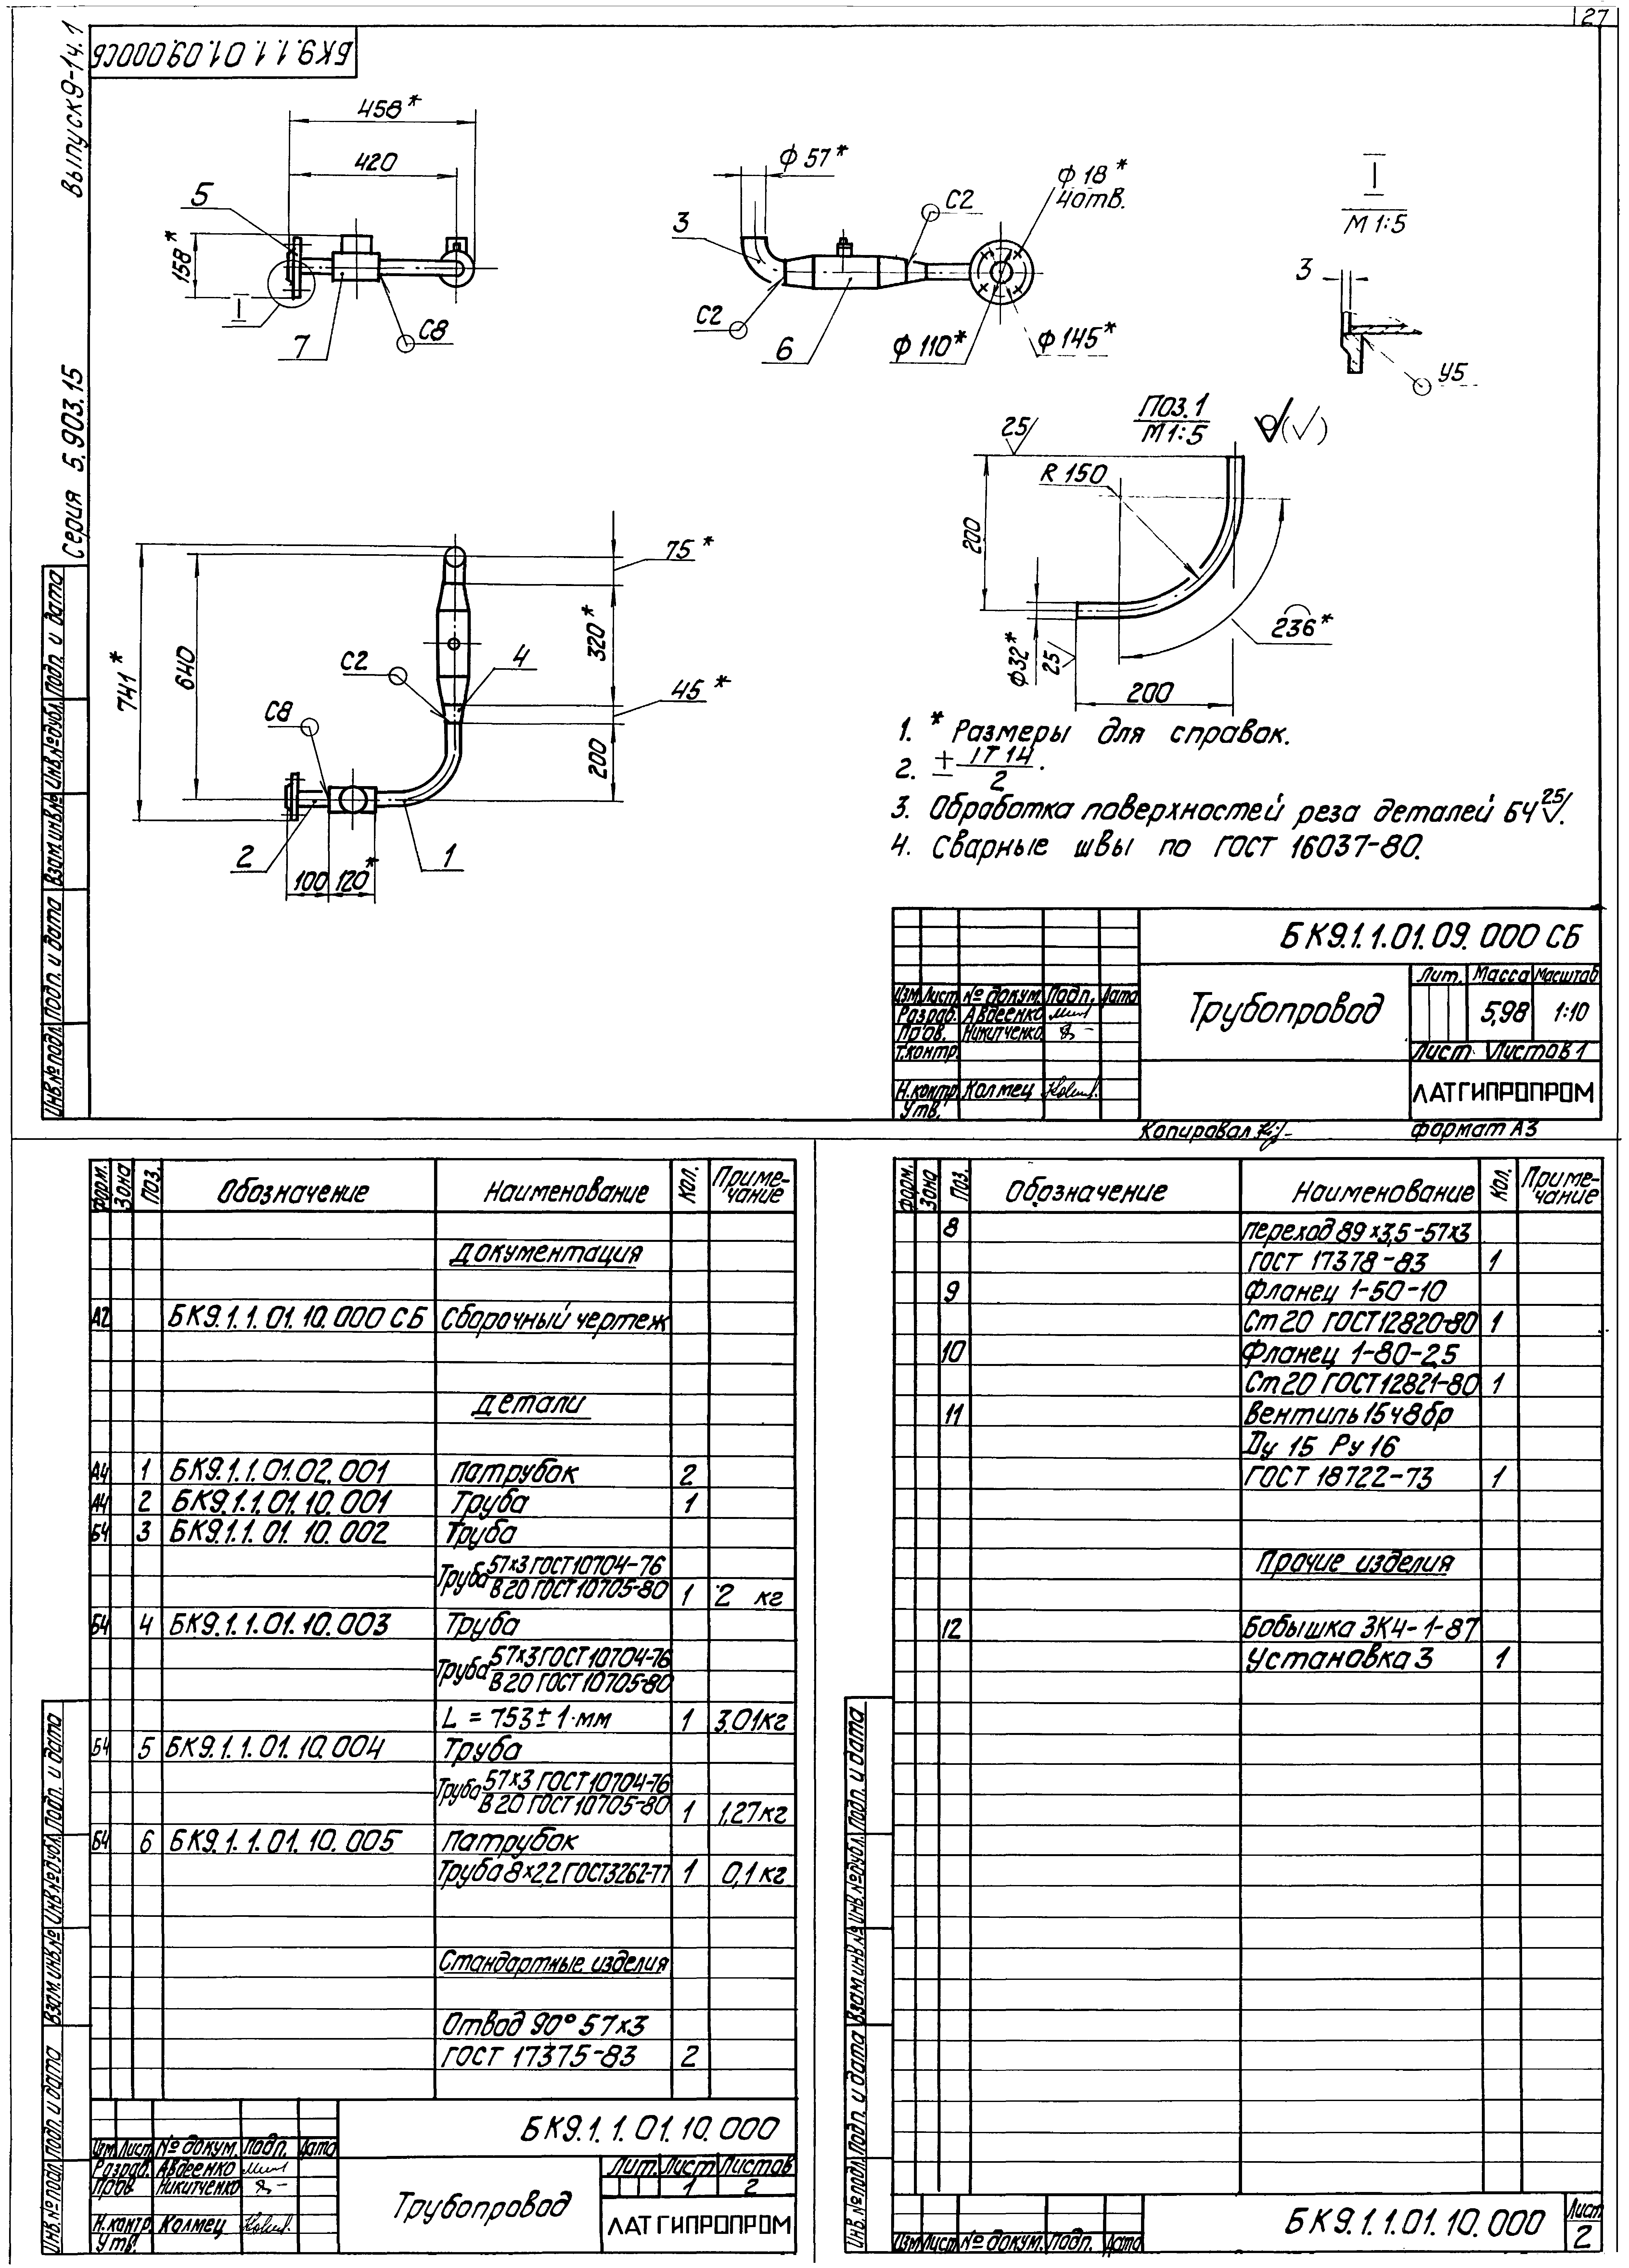 27
БК9.1.1.01.09.000СБ
Выпуск 9-1ч.1
Серия 5.903.15
458*
420
5
158*
I
7
С8
ф57*
3
С2
ф18*
4отв.
С2
6
ф110*
ф145*
I
М 1:5
3
У5
Поз.1
М1:5
(√)
25
R 150
200
ф32*
25
236*
200
741*
640
75*
320*
С2
4
45*
С8
200
2
100
120*
1
1. * Размеры для справок.
2. ± IT 14
2 .
3. Обработка поверхностей реза деталей БЧ 25.
4. Сварные швы по ГОСТ 16037-80.
БК9.1.1.01.09.000 СБ
Изм. Лист № докум. Подп. Дата
Разраб. Авдеенко
Пров. Никитченко
Т.контр.
Н.контр. Колмец
Утв.
Трубопровод
Лит. Масса Масштаб
5,98 1:10
Лист Листов 1
ЛАТГИПРОПРОМ
Копировал
Формат А3
Инв.№подл. Подп. и дата Взам.инв.№ Инв.№дубл. Подп. и дата
Форм. Зона Поз. Обозначение Наименование Кол. Приме-
чание
Документация
А2 БК9.1.1.01.10.000 СБ Сборочный чертеж
Детали
А4 1 БК9.1.1.01.02.001 Патрубок 2
А4 2 БК9.1.1.01.10.001 Труба 1
БЧ 3 БК9.1.1.01.10.002 Труба
Труба 57×3 ГОСТ 10704-76
В 20 ГОСТ 10705-80 1 2 кг
БЧ 4 БК9.1.1.01.10.003 Труба
Труба 57×3 ГОСТ 10704-76
В 20 ГОСТ 10705-80
L = 753±1 мм 1 3,01кг
БЧ 5 БК9.1.1.01.10.004 Труба
Труба 57×3 ГОСТ 10704-76
В 20 ГОСТ 10705-80 1 1,27кг
БЧ 6 БК9.1.1.01.10.005 Патрубок
Труба 8×2,2 ГОСТ3262-77 1 0,1 кг
Стандартные изделия
Отвод 90° 57×3
ГОСТ 17375-83 2
БК9.1.1.01.10.000
Изм. Лист № докум. Подп. Дата
Разраб. Авдеенко
Пров. Никитченко
Н.контр. Колмец
Утв.
Трубопровод
Лит. Лист Листов
1 2
ЛАТГИПРОПРОМ
Инв.№подл. Подп. и дата Взам.инв.№ Инв.№дубл. Подп. и дата
Форм. Зона Поз. Обозначение Наименование Кол. Приме-
чание
8 Переход 89×3,5-57×3
ГОСТ 17378-83 1
9 Фланец 1-50-10
Ст20 ГОСТ12820-80 1
10 Фланец 1-80-2,5
Ст20 ГОСТ12821-80 1
11 Вентиль 15ч8бр
Ду 15 Ру 16
ГОСТ 18722-73 1
Прочие изделия
12 Бобышка ЗК4-1-87
Установка 3 1
Инв.№подл. Подп. и дата Взам.инв.№ Инв.№дубл. Подп. и дата
Изм. Лист № докум. Подп. Дата
БК9.1.1.01.10.000
Лист
2